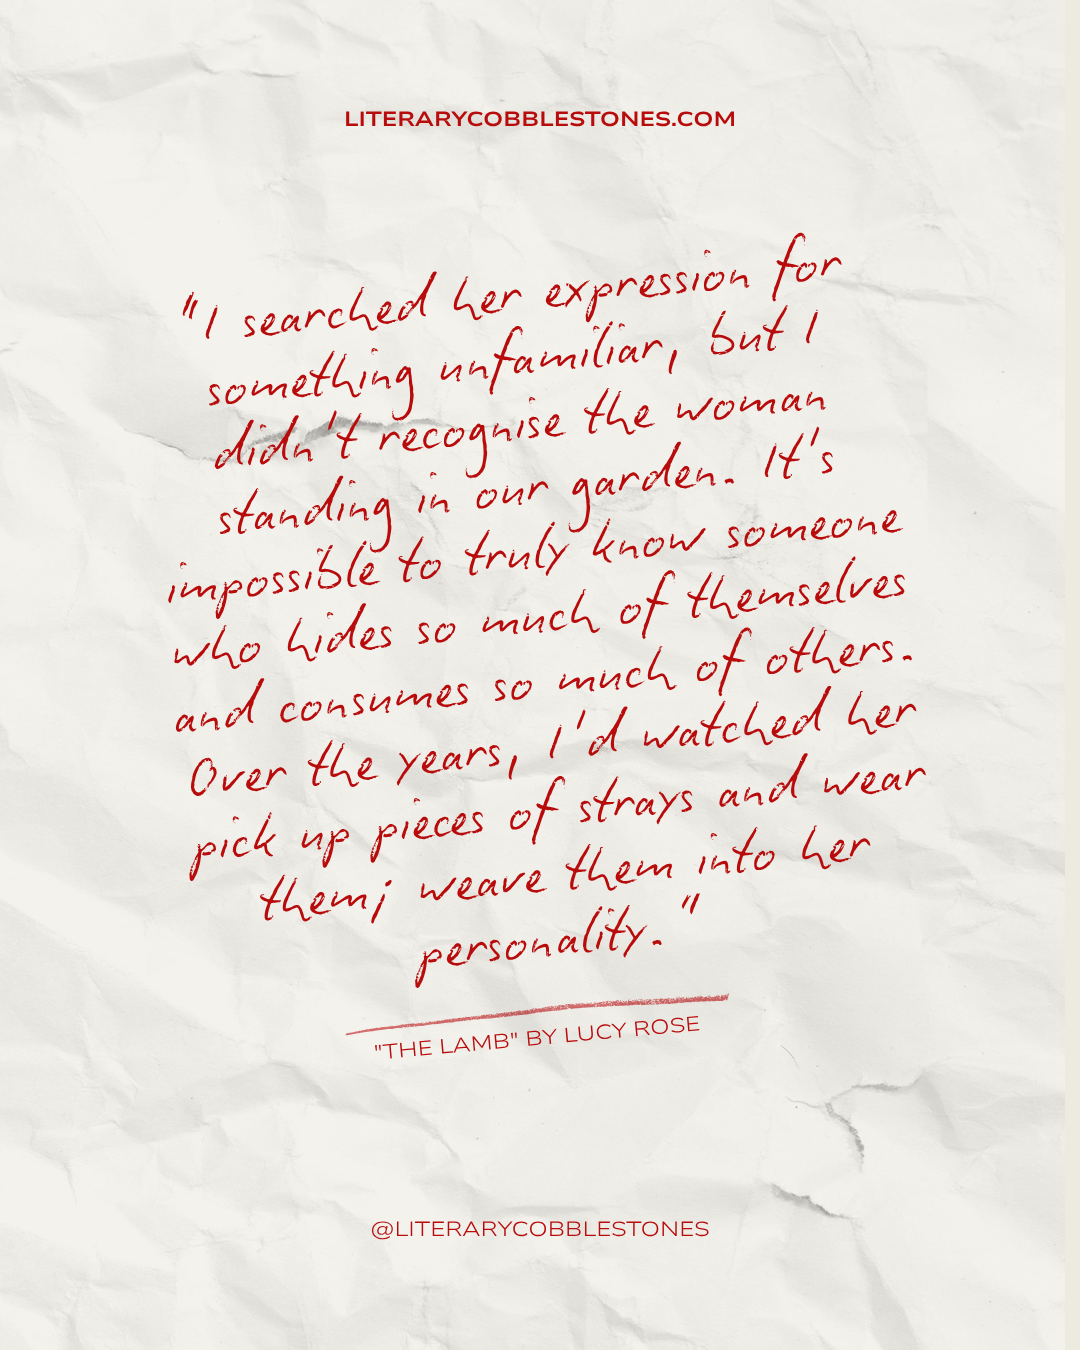 LITERARYCOBBLESTONES.COM
"I searched her expression for
something unfamiliar, but I
didn't recognise the woman
standing in our garden. It's
impossible to truly know someone
who hides so much of themselves
and consumes so much of others.
Over the years, I'd watched her
pick up pieces of strays and wear
them; weave them into her
personality."
"THE LAMB" BY LUCY ROSE
@LITERARYCOBBLESTONES